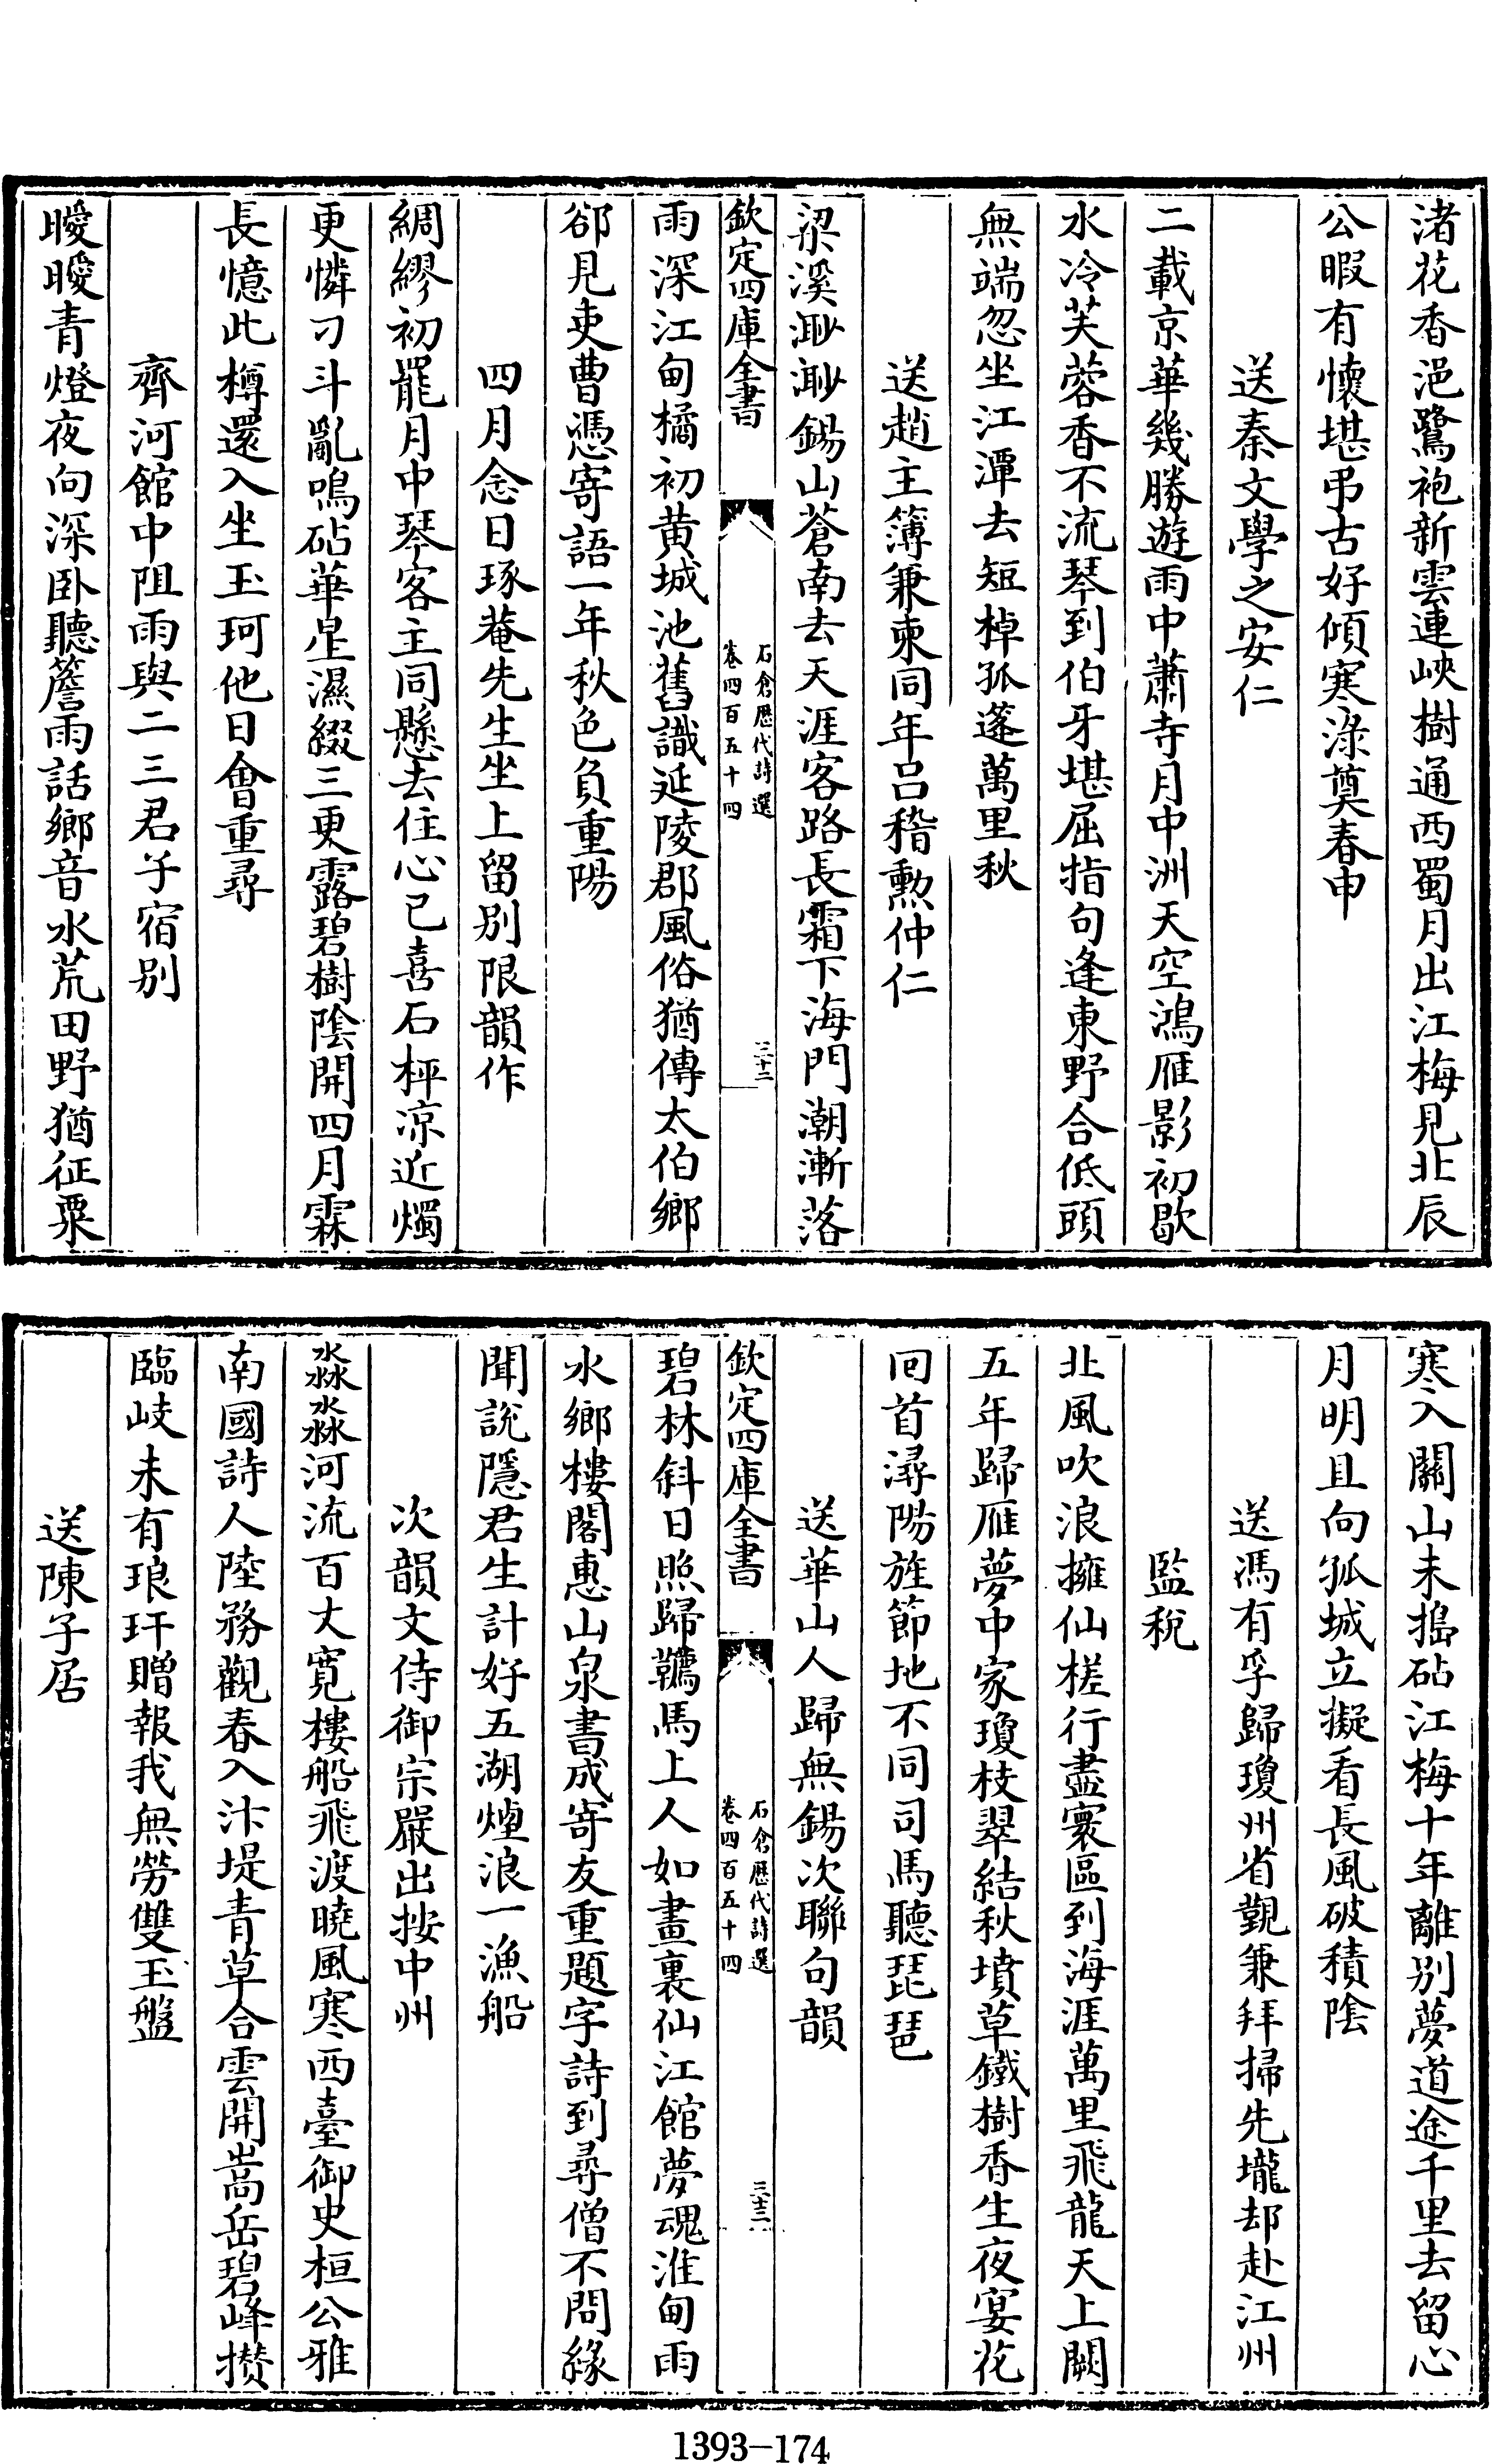 渚花香浥鷺袍新雲連峽樹通西蜀月出江梅見北辰
公暇有懷堪弔古好傾寒渌奠春申
送秦文學之安仁
二載京華幾勝遊雨中蕭寺月中洲天空鴻雁影初歇
水冷芙蓉香不流琴到伯牙堪屈指句逢東野合低頭
無端忽坐江潭去短棹孤蓬萬里秋
送趙主簿兼柬同年呂稽勲仲仁
梁溪渺渺錫山蒼南去天涯客路長霜下海門潮漸落
欽定四庫全書
石倉歴代詩選
卷四百五十四
三十二
雨深江甸橘初黄城池舊識延陵郡風俗猶傳太伯鄉
郤見吏曹憑寄語一年秋色負重陽
四月念日琢菴先生坐上留别限韻作
綢繆初罷月中琴客主同懸去住心已喜石枰凉近燭
更憐刁斗亂鳴砧華星濕綴三更露碧樹陰開四月霖
長憶此樽還入坐玉珂他日會重尋
齊河館中阻雨與二三君子宿别
曖曖青燈夜向深卧聽簷雨話鄉音水荒田野猶征粟
寒入關山未搗砧江梅十年離别夢道途千里去留心
月明且向孤城立擬看長風破積陰
送馮有孚歸瓊州省覲兼拜掃先壠却赴江州
監稅
北風吹浪擁仙槎行盡寰區到海涯萬里飛龍天上闕
五年歸雁夢中家瓊枝翠結秋墳草鐵樹香生夜宴花
回首潯陽旌節地不同司馬聽琵琶
送華山人歸無錫次聯句韻
欽定四庫全書
石倉歴代詩選
卷四百五十四
三十三
碧林斜日照歸韉馬上人如畫裏仙江館夢魂淮甸雨
水鄉樓閣惠山泉書成寄友重題字詩到尋僧不問緣
聞說隱君生計好五湖煙浪一漁船
次韻文侍御宗嚴出按中州
淼淼河流百丈寛樓船飛渡曉風寒西臺御史桓公雅
南國詩人陸務觀春入汴堤青草合雲開嵩岳碧峰攢
臨岐未有琅玕贈報我無勞雙玉盤
送陳子居
1393-174